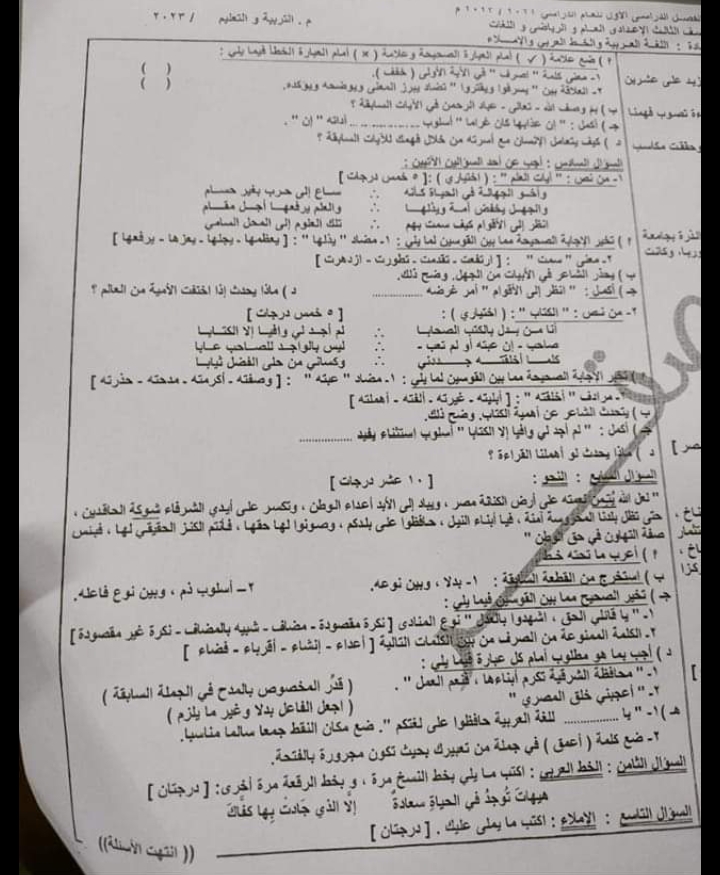 الفصل الدراسى الأول للعام الدراسى ٢٠٢٢/٢٠٢١ م
م . التربية و التعليم / ٢٠٢٣
الصف الثالث الإعدادى العام و الرياضى و اللغات
مادة : اللغة العربية والخط العربي والإملاء
أ ) ضع علامة ( ✓ ) أمام العبارة الصحيحة وعلامة ( × ) أمام العبارة الخطأ فيما يلي :
١- معنى كلمة " اصرف " في الآية الأولى ( خفف ). ( )
٢. العلاقة بين " يسرفوا ويقتروا " تضاد يبرز المعنى ويوضحه ويؤكده. ( )
زيد على عشرين
ب ) بم وصف الله - تعالى - عباد الرحمن في الآيات السابقة ؟
ءة تصوب فهمنا
جـ ) أكمل : " إن عذابها كان غراما " أسلوب .................... أداته " إن " .
وحققت مكاسب
د ) كيف يتعامل الإنسان مع أسرته من خلال فهمك للآيات السابقة ؟
السؤال السادس : أجب عن أحد السؤالين الآتيين :
١- من نص : " آيات العلم " : ( اختياري ) : [ ٥ خمس درجات ]
وأخو الجهالة في الحياة كأنه ∴ ساع إلى حرب بغير حسام
والجهل يخفض أمة ويذلها ∴ والعلم يرفعها أجل مقام
انظر إلى الأقوام كيف سمت بهم ∴ تلك العلوم إلى المحل السامي
الذرة بجامعة
أ ) تخير الإجابة الصحيحة مما بين القوسين لما يلي : ١- مضاد " يذلها " : [ يعظمها - يجلها - يعزها - يرفعها ]
وربا، وكانت
٢- معنى " سمت " : [ ارتفعت - تقدمت - تطورت - ازدهرت ]
ب ) يحذر الشاعر في الأبيات من الجهل. وضح ذلك.
جـ ) أكمل : " انظر إلى الأقوام " أمر غرضه ............... د ) ماذا يحدث إذا اختفت الأمية من العالم ؟
٢- من نص : " الكتاب " : ( اختياري ) : [ ٥ خمس درجات ]
أنا من بدل بالكتب الصحابا ∴ لم أجد لي وافيا إلا الكتابا
صاحب - إن عبته أو لم تعب - ∴ ليس بالواجد للصاحب عابا
كلما أخلقته جددني ∴ وكساني من حلى الفضل ثيابا
أ ) تخير الإجابة الصحيحة مما بين القوسين لما يلي : ١- مضاد " عبته " : [ وصفته - أكرمته - مدحته - حذرته ]
٢- مرادف " أخلقته " : [ أبليته - غيرته - ألفته - أهملته ]
ب ) يتحدث الشاعر عن أهمية الكتاب. وضح ذلك.
جـ ) أكمل : " لم أجد لي وافيا إلا الكتابا " أسلوب استثناء يفيد ...............
صر ]
د ) ماذا يحدث لو أهملنا القراءة ؟
السؤال السابع : النحو : [ ١٠ عشر درجات ]
" لعل الله يتمن نعمته على أرض الكنانة مصر ، ويباد إلى الأبد أعداء الوطن ، وتكسر على أيدي الشرفاء شوكة الحاقدين ،
حتى تظل بلدنا المحروسة آمنة ، فيا أبناء النيل ، حافظوا على بلدكم ، وصونوا لها حقها ، فأنتم الكنز الحقيقي لها ، فبئس
صفة التهاون في حق الوطن "
أ ) أعرب ما تحته خط .
ب ) استخرج من القطعة السابقة : ١- بدلا ، وبين نوعه. ٢- أسلوب ذم ، وبين نوع فاعله.
جـ ) تخير الصحيح مما بين القوسين فيما يلي :
١- " يا قائلي الحق ، اشهدوا بالعدل " نوع المنادى [ نكرة مقصودة - مضاف - شبيه بالمضاف - نكرة غير مقصودة ]
٢. الكلمة الممنوعة من الصرف من بين الكلمات التالية [ أعداء - إنشاء - أقرباء - فضاء ]
د ) أجب بما هو مطلوب أمام كل عبارة فيما يلي :
١- " محافظة الشرقية تكرم أبناءها ، فنعم العمل " . ( قدر المخصوص بالمدح في الجملة السابقة )
٢- " أعجبني خلق المصري " ( اجعل الفاعل بدلا وغير ما يلزم )
هـ ) ١- " يا ............... للغة العربية حافظوا على لغتكم ". ضع مكان النقط جمعا سالما مناسبا.
٢- ضع كلمة ( أعمق ) في جملة من تعبيرك بحيث تكون مجرورة بالفتحة.
السؤال الثامن : الخط العربي : اكتب ما يلي بخط النسخ مرة ، و بخط الرقعة مرة أخرى: [ درجتان ]
هيهات تُوجدُ في الحياةِ سعادةٌ إلا الذي جَادتْ بِها كفَّاكَ
السؤال التاسع : الإملاء : اكتب ما يملى عليك . [ درجتان ]
(( انتهت الأسئلة ))